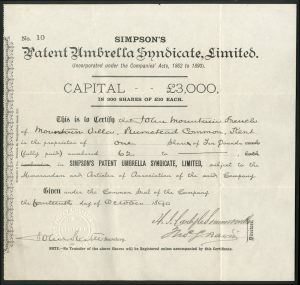 No. 10
SIMPSON'S
Patent Umbrella Syndicate, Limited.
(Incorporated under the Companies' Acts, 1862 to 1890).
CAPITAL £3,000,
IN 300 SHARES OF £10 EACH.
This is to Certify that John Mountain French
of Mountain Villa, Plumstead Common, Kent
is the proprietor of one Share of Ten Pounds
(fully paid) numbered 62 to
in SIMPSON'S PATENT UMBRELLA SYNDICATE, LIMITED, subject to the
Memorandum and Articles of Association of the said Company.
Given under the Common Seal of the Company
the fourteenth day of October 1890
Secretary.
Directors.
NOTE.—No Transfer of the above Shares will be Registered unless accompanied by this Certificate.